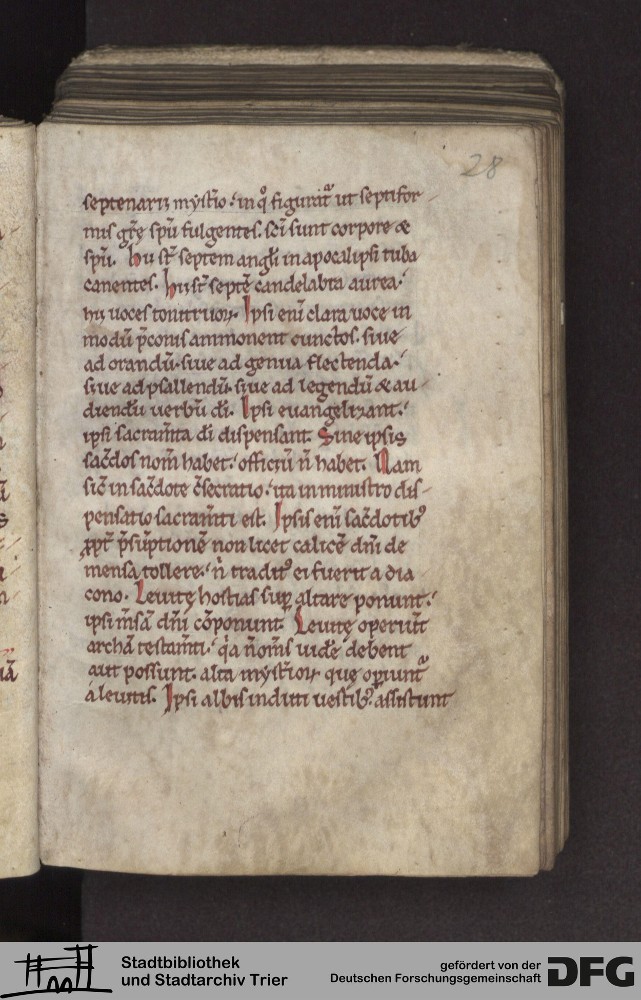 28
septenarii mẏst̄io. in q̊ figurat̄ ut septifor
mis gr̄ę sp̄u fulgentes. sc̄i sunt corpore &
sp̄u. hii st̄ septem angl̄i in apocalipsi tuba
canentes. hii st̄ septē candelabra aurea.
hii uoces tonitruoꝝ. Ipsi eni clara uoce in
modū p̄conis ammonent cunctos. siue
ad orandū. siue ad genua flectenda.
siue ad psallendū. siue ad legendū & au
diendū uerbū dī. Ipsi euangelizant.
ipsi sacram̄ta dī dispensant. Sine ipsis
sac̄dos nom̄ habet. officiū n̄ habet. Nam
sic̄ in sac̄dote c̄secratio. ita in ministro dis
pensatio sacram̄ti est. Ipsis eni sac̄dotibꝰ
ꝓpt̄ p̄sūptionē non licet calicē dn̄i de
mensa tollere. n̄ traditꝰ ei fuerit a dia
cono. Leuitę hostias suꝑ altare ponunt.
ipsi m̄sā dn̄i cō̄ponunt. Leuitę operiūt
archā testam̄ti. q̇a n̄ om̄s uidē debent
aut possunt. alta mẏst̄ioꝝ quę oꝑiunt̄
a leuitis. Ipsi albis induti uestibꝰ. assistunt
Stadtbibliothek
und Stadtarchiv Trier
gefördert von der
Deutschen Forschungsgemeinschaft
DFG